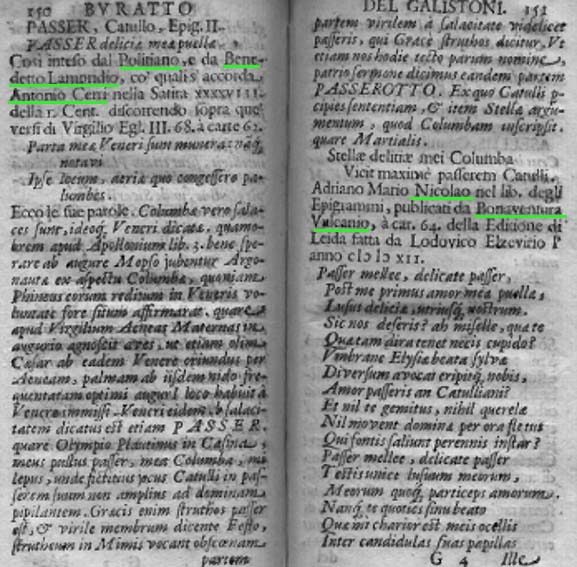 150 BVRATTO
PASSER, Catullo, Epig. II.
PASSER deliciæ meæ puellæ.
Così inteso dal Politiano, e da Bene-
detto Lampridio, co' quali s'accorda
Antonio Cerri nella Satira XXXXVIII.
della 1. Cent. discorrendo sopra que'
versi di Virgilio Egl. III. 68. à carte 62.
Parta meæ Veneri sunt munera: naq;
notavi
Ipse locum, aeriæ quo congessere pa-
lumbes.
Ecco le sue parole. Columbæ vero sala-
ces sunt, ideoq; Veneri dicatæ, quamo-
brem apud Apollonium lib. 3. bene spe-
rare ab augure Mopso jubentur Argo-
nautæ ex aspectu Columbæ, quoniam
Phineus eorum reditum in Veneris vo-
luntate fore situm affirmarat. quare
apud Virgilium Aeneas Maternas in
augurio agnoscit aves, ut etiam olim
Cæsar ab eadem Venere oriundus per
Aeneam, palmam ab iisdem nido fre-
quentatam optimi augurI loco habuit à
Venere immissi. Veneri eidem, & salaci-
tatem dicatus est etiam PASSER.
quare Olympio Plautinus in Casina,
meus pullus passer, mea Columba, mi
lepus, unde fictitius jocus Catulli in pas-
serem suum non amplius ad dominam
pipilantem. Græcis enim struthos passer
est, & virile membrum dicente Festo,
strutheum in Mimis vocant obscœnam
partem
DEL GALISTONI. 151
partem virilem à salacitate videlicet
passeris, qui Græce struthos dicitur. Vt
etiam nos hodie tecto parum nomine,
patrio sermone dicimus eandem partem
PASSEROTTO. Ex quo Catulli p-
cipies sententiam, & item Stellæ argu-
mentum, quod Columbam inscripsit.
quare Martialis.
Stellæ delitiæ mei Columba
Vicit maxime passerem Catulli.
Adriano Mario Nicolao nel lib. degli
Epigrammi, publicati da Bonaventura
Vulcanio, à car. 64. della Editione di
Leida fatta da Lodovico Elzevirio l'
anno cIɔ Iɔ XII.
Passer mellee, delicate passer,
Post me primus amor meæ puellæ,
Lusus deliciæ, utriusq; nostrum.
Sic nos deseris? ah miselle, quæ te
Quætam dira tenet necis cupido?
Vmbrane Elysiæ beata sylvæ
Diversum avocat eripitq; nobis,
Amor passeris an Catulliani?
Et nil te gemitus, nihil querelæ
Nil movent dominæ per ora fletus
Qui fontis saliunt perennis instar?
Passer mellee, delicate passer
Testis unice lusuum meorum,
Meorum quoq; particeps amorum.
Nanq; te quoties sinu beato
Quæ mi charior est meis ocellis
Inter candidulas suas papillas
G 4 Ille